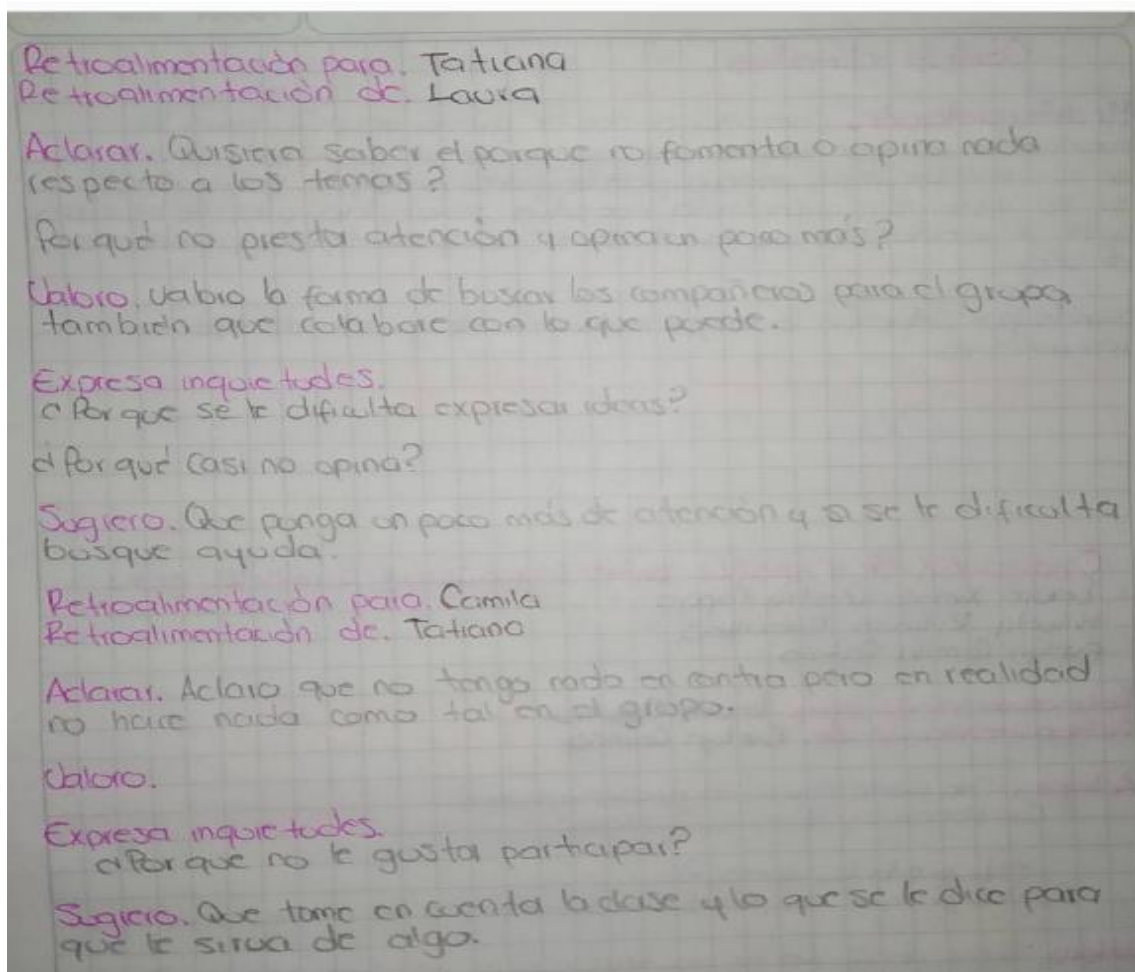 Retroalimentación para. Tatiana
Retroalimentación de. Laura
Aclarar. Quisiera saber el porque no fomenta o opina nada
respecto a los temas?
Por qué no presta atención y opina un poco más?
Valoro. Valoro la forma de buscar los compañeros para el grupo
también que colabore con lo que puede.
Expresa inquietudes.
¿Por que se le dificulta expresar ideas?
¿Por qué casi no opina?
Sugiero. Que ponga un poco más de atención y si se le dificulta
busque ayuda.
Retroalimentación para. Camila
Retroalimentación de. Tatiana
Aclarar. Aclaro que no tengo nada en contra pero en realidad
no hace nada como tal en el grupo.
Valoro.
Expresa inquietudes.
¿Por que no le gusta participar?
Sugiero. Que tome en cuenta la clase y lo que se le dice para
que le sirva de algo.